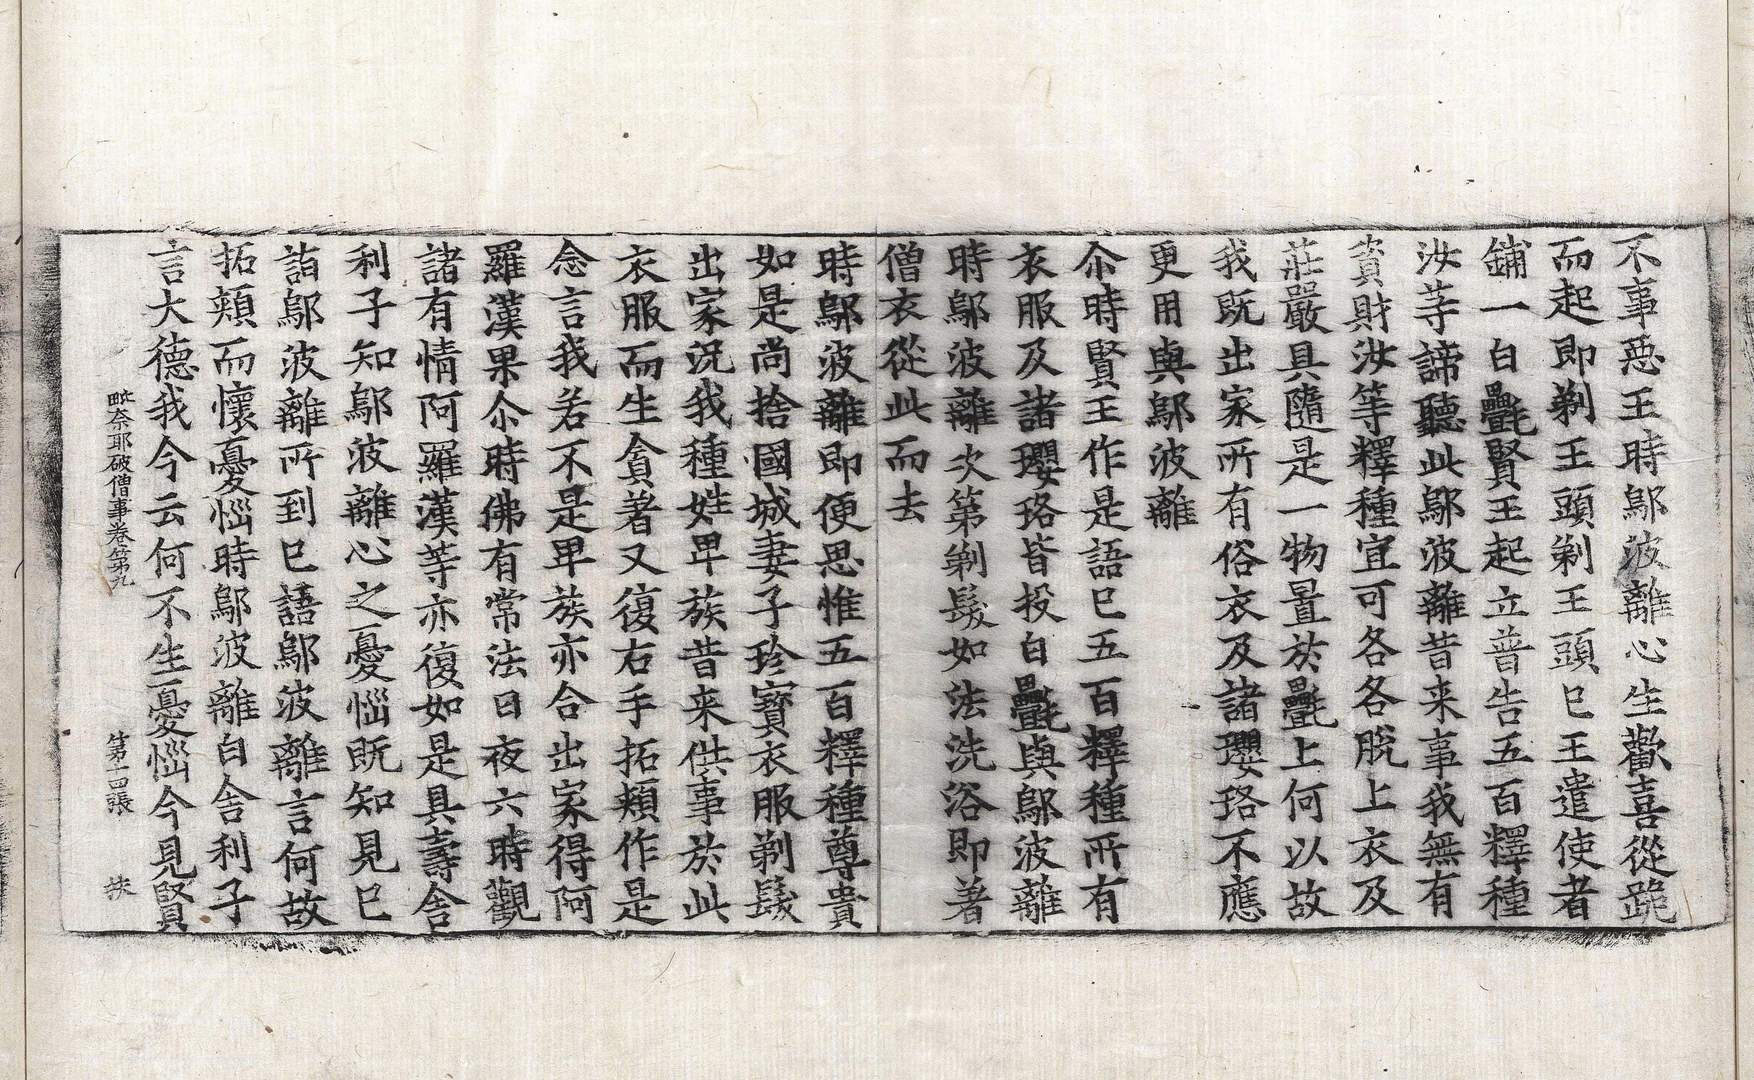 不事惡王時鄔波離心生歡喜從跪
而起即剃王頭剃王頭已王遣使者
鋪一白㲲賢王起立普告五百釋種
汝䓁諦聽此鄔波離昔来事我無有
資財汝等釋種宜可各各脫上衣及
莊嚴具隨是一物置於㲲上何以故
我既出家所有俗衣及諸瓔珞不應
更用與鄔波離
尒時賢王作是語已五百釋種所有
衣服及諸瓔珞皆投白㲲與鄔波離
時鄔波離次第剃髮如法洗浴即著
僧衣從此而去
時鄔波離即便思惟五百釋種尊貴
如是尚捨國城妻子珍寶衣服剃髮
出家況我種姓卑族昔来供事於此
衣服而生貪著又復右手拓頰作是
念言我若不是卑族亦合出家得阿
羅漢果尒時佛有常法日夜六時觀
諸有情阿羅漢等亦復如是具壽舍
利子知鄔波離心之憂惱既知見已
詣鄔波離所到已語鄔波離言何故
拓頰而懷憂惱時鄔波離白舍利子
言大德我今云何不生憂惱今見賢
毗奈耶破僧事卷第九 第十四張